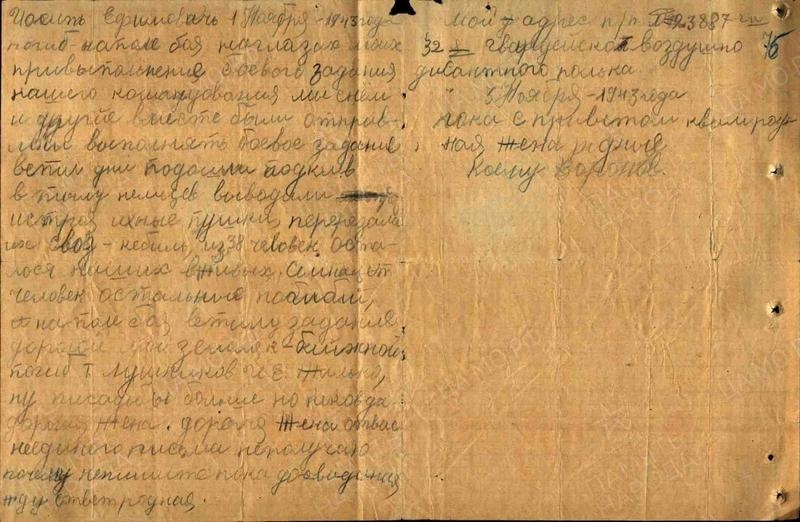 Иосить Ефимовичь 1 Ноября-1943 года
погиб-на поле боя наглазах моих
привыполнение боевого задания
нашего командования мы снем
и другие вместе были отправ-
лены выполнять боевое задание
вети дни подошли под киев
в тылу немцев выводали
истроя ихные пушки, перерезали
их связ-кебиль, из 38 человек оста-
лося наших вживых,
человек остальные погибли,
на поле боя ветилу задание
дорогой мой земляк
погиб т Лушников И.Е. жилько,
ну писать больше по некогда
дорогая жена. дорога жена отвас
неединого письма неполучаю
почему непишите пока досвидания
жду ответ родная.
мой адрес п/п 23887
32 гвардейской воздушно 76
дисантного полька
5 Ноября-1943 года
пока с приветом к вам
ная жена родния